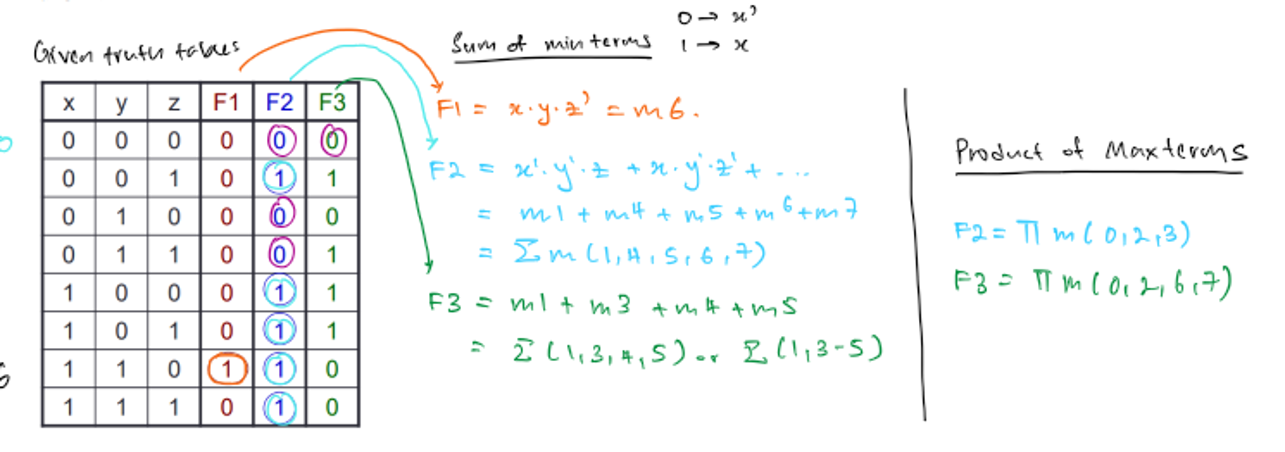 0 → x'
Given truth tables
Sum of minterms
1 → x
x y z F1 F2 F3
0 0 0 0 0 0
0 0 1 0 1 1
0 1 0 0 0 0
0 1 1 0 0 1
1 0 0 0 1 1
1 0 1 0 1 1
1 1 0 1 1 0
1 1 1 0 1 0
F1 = x·y·z' = m6.
F2 = x'·y'·z + x·y'·z' + ...
= m1 + m4 + m5 + m6 + m7
= Σm (1,4,5,6,7)
F3 = m1 + m3 + m4 + m5
= Σ (1,3,4,5) or Σ (1,3-5)
Product of Maxterms
F2 = Π m (0,2,3)
F3 = Π m (0,2,6,7)